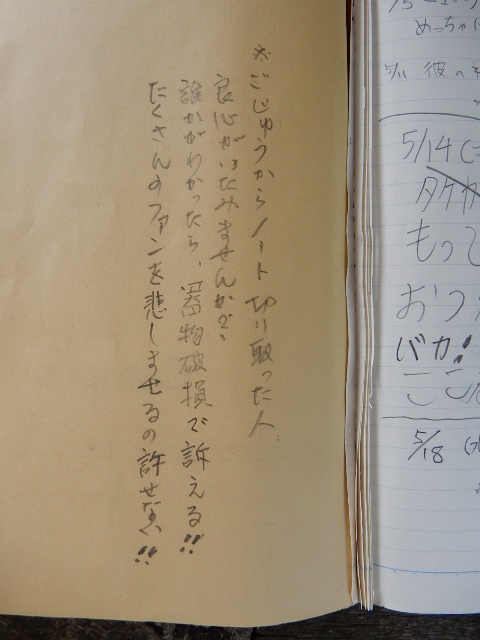 ※ごじゅうからノート切り取った人
良心がいたみませんか?、
誰かがわかったら、器物破損で訴える!!
たくさんのファンを悲しませるの許せない!!
めっちゃ
5/11 彼へ
5/14
もって
おつ
バカ!
ここ
5/18